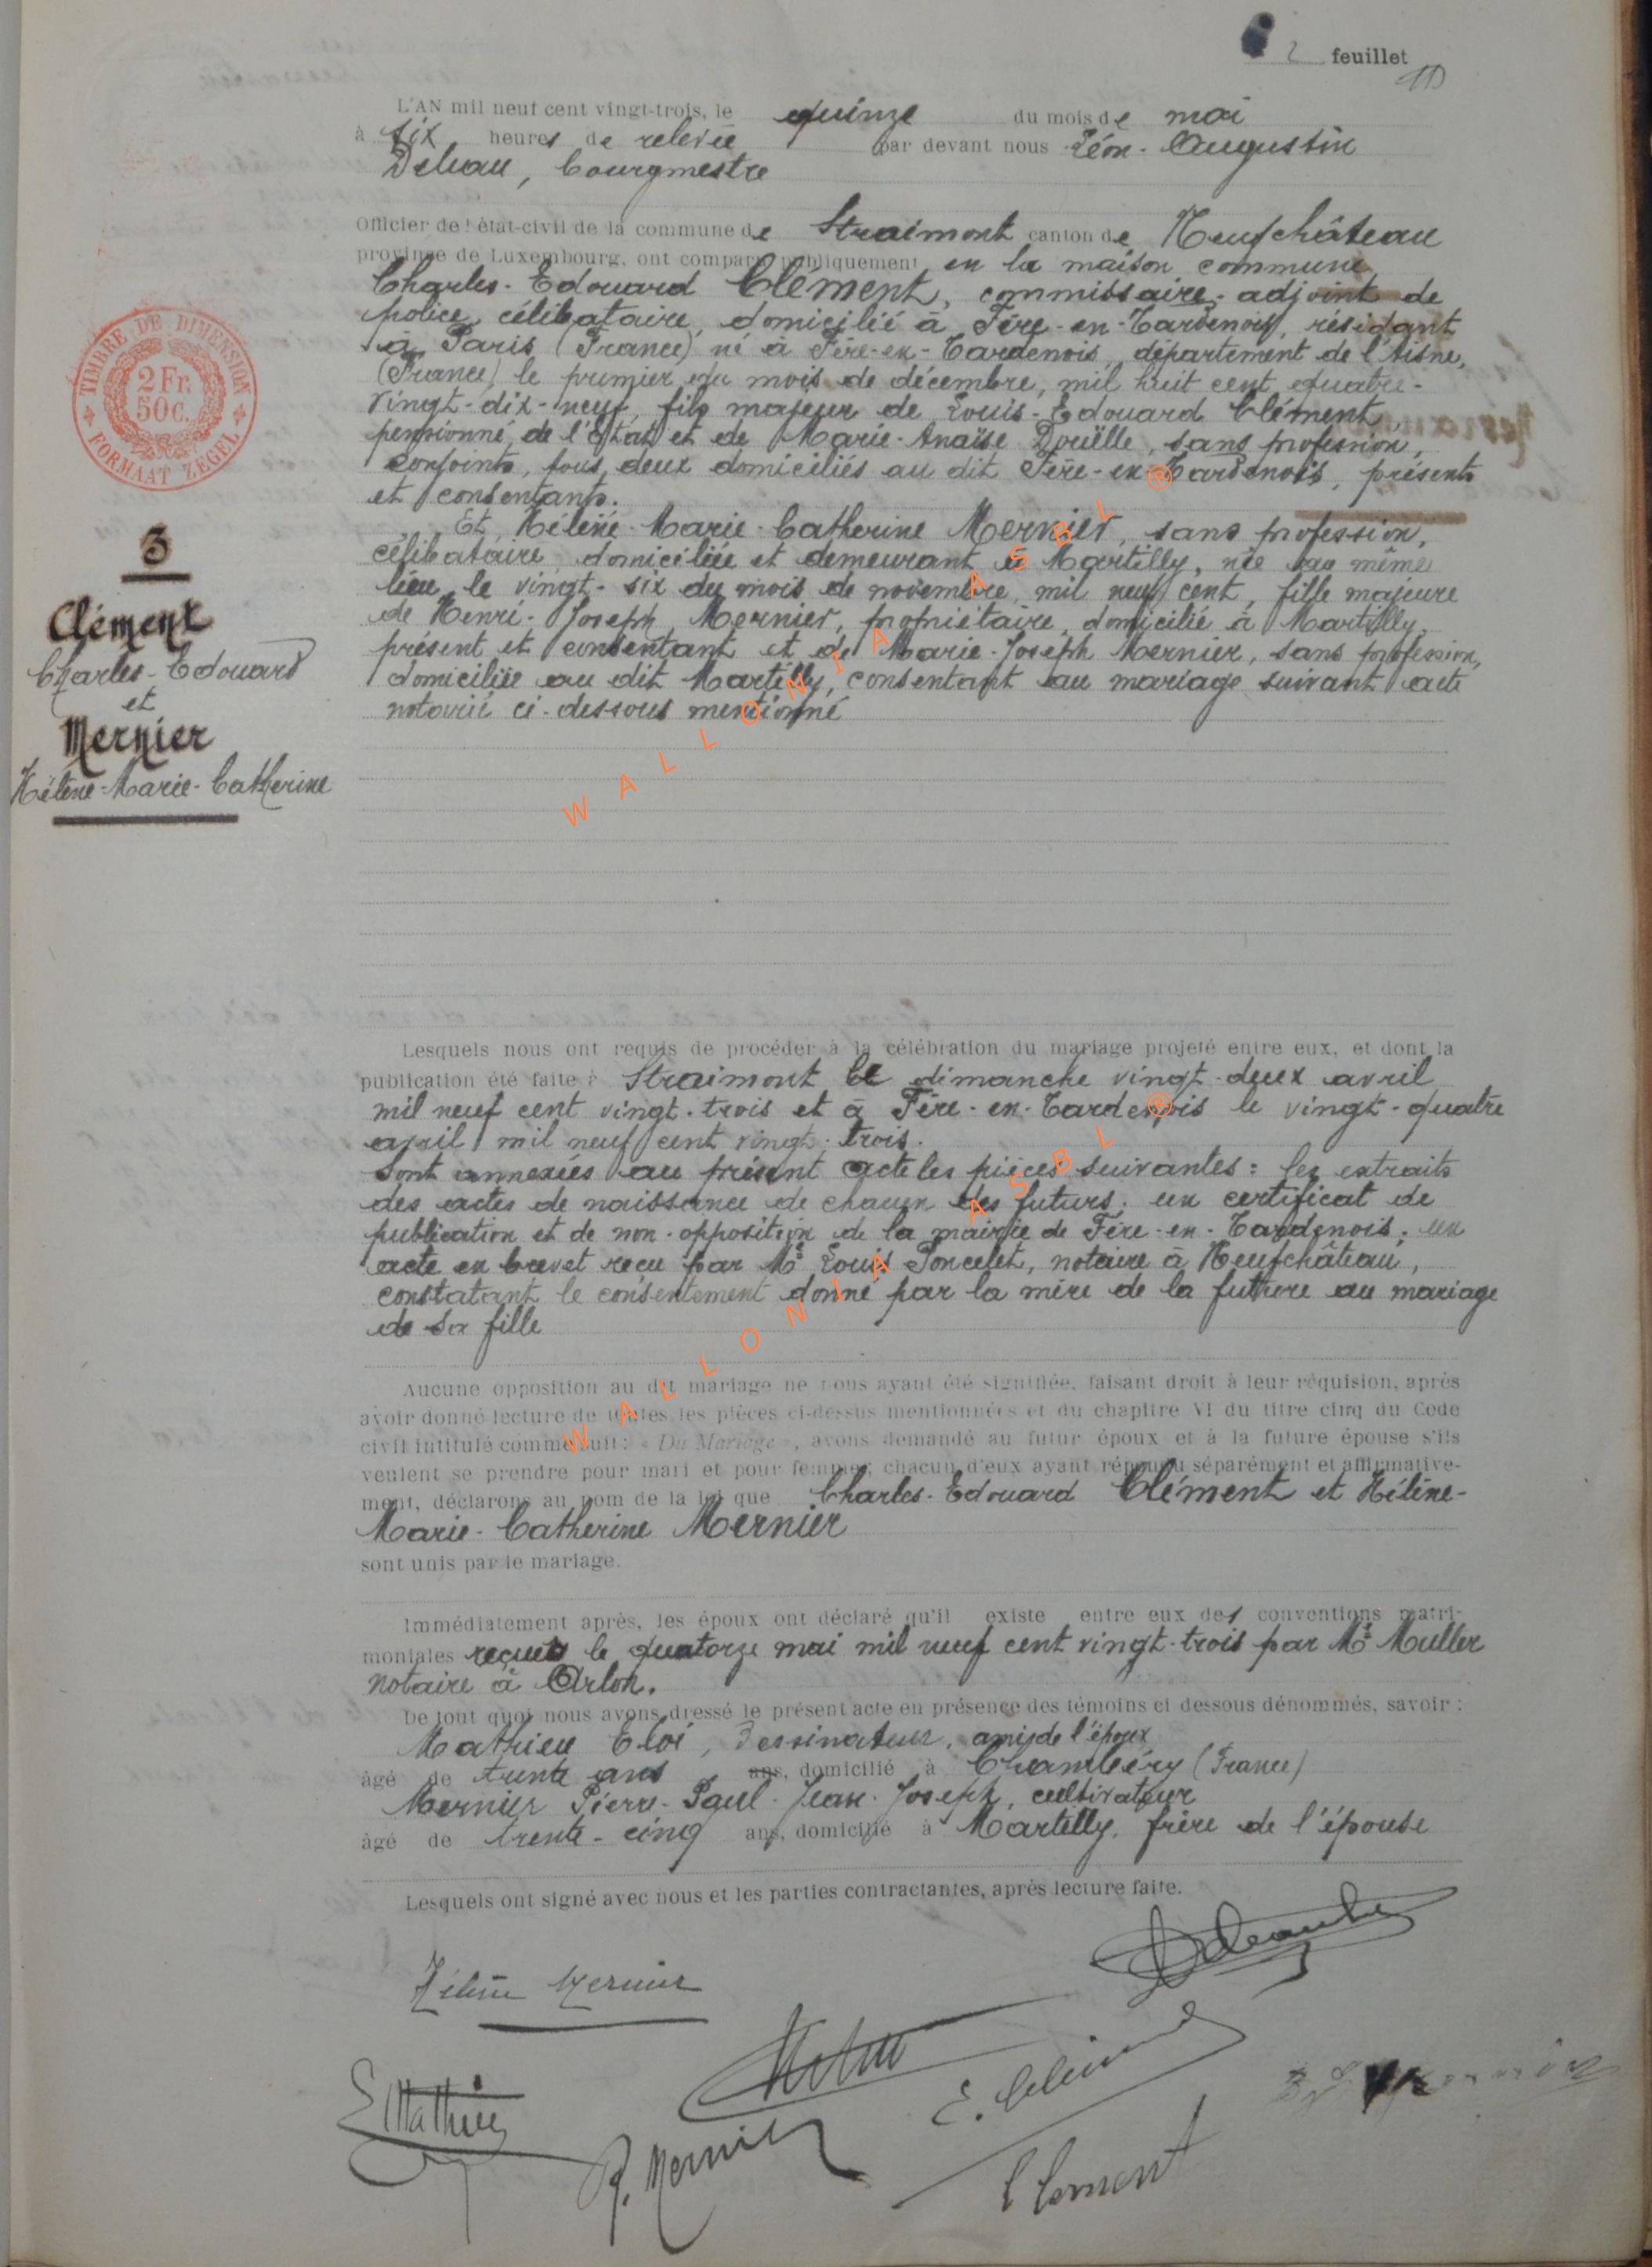 2 feuillet
L'AN mil neuf cent vingt-trois, le quinze du mois de mai
à six heures de relevée par devant nous Léon-Augustin
bourgmestre
Officier de l'état-civil de la commune de Straimont canton de Neufchâteau
province de Luxembourg, ont comparu publiquement en la maison commune
Charles-Edouard Clément, commissaire-adjoint de
police, célibataire, domicilié à Fère-en-Tardenois, résidant
à Paris (France) né à Fère-en-Tardenois, département de l'Aisne,
(France) le premier du mois de décembre, mil huit cent quatre-
vingt-dix-neuf, fils majeur de Louis-Edouard Clément,
pensionné de l'Etat et de Marie-Anaïse Druëlle, sans profession,
conjoints, tous deux domiciliés au dit Fère-en-Tardenois, présents
et consentants.
Et Hélène-Marie-Catherine Mernier, sans profession,
célibataire, domiciliée et demeurant à Martilly, née au même
lieu le vingt-six du mois de novembre, mil neuf cent, fille majeure
de Henri-Joseph Mernier, propriétaire, domicilié à Martilly,
présent et consentant et de Marie-Joseph Mernier, sans profession,
domiciliée au dit Martilly, consentant au mariage suivant acte
notarié ci-dessous mentionné
TIMBRE DE DIMENSION
2 Fr.
50 c.
FORMAAT ZEGEL
3
Clément
Charles-Edouard
et
Mernier
Hélène-Marie-Catherine
Lesquels nous ont requis de procéder à la célébration du mariage projeté entre eux, et dont la
publication été faite à Straimont le dimanche vingt-deux avril
mil neuf cent vingt-trois et à Fère-en-Tardenois le vingt-quatre
avril mil neuf cent vingt-trois.
Sont annexées au présent acte les pièces suivantes : les extraits
des actes de naissance de chacun des futurs ; un certificat de
publication et de non-opposition de la mairie de Fère-en-Tardenois ; un
acte en brevet reçu par Me Louis Poncelet, notaire à Neufchâteau,
constatant le consentement donné par la mère de la future au mariage
de sa fille
Aucune opposition au dit mariage ne nous ayant été signifiée, faisant droit à leur réquision, après
avoir donné lecture de toutes les pièces ci-dessus mentionnées et du chapitre VI du titre cinq du Code
civil intitulé comme suit : « Du Mariage », avons demandé au futur époux et à la future épouse s'ils
veulent se prendre pour mari et pour femme ; chacun d'eux ayant répondu séparément et affirmative-
ment, déclarons au nom de la loi que Charles-Edouard Clément et Hélène-
Marie-Catherine Mernier
sont unis par le mariage.
Immédiatement après, les époux ont déclaré qu'il existe entre eux des conventions matri-
moniales reçues le quatorze mai mil neuf cent vingt-trois par Me Muller
notaire à Arlon.
De tout quoi nous avons dressé le présent acte en présence des témoins ci dessous dénommés, savoir :
Mathieu Eloi, dessinateur, ami de l'époux
âgé de trente ans ans, domicilié à Chambéry (France)
Mernier Pierre-Paul-Jean-Joseph, cultivateur
âgé de trente-cinq ans, domicilié à Martilly, frère de l'épouse
Lesquels ont signé avec nous et les parties contractantes, après lecture faite.
Hélène Mernier
E. Clément
E Mathieu
P. Mernier
Clement
WALLONIA ASBL ®
WALLONIA ASBL ®